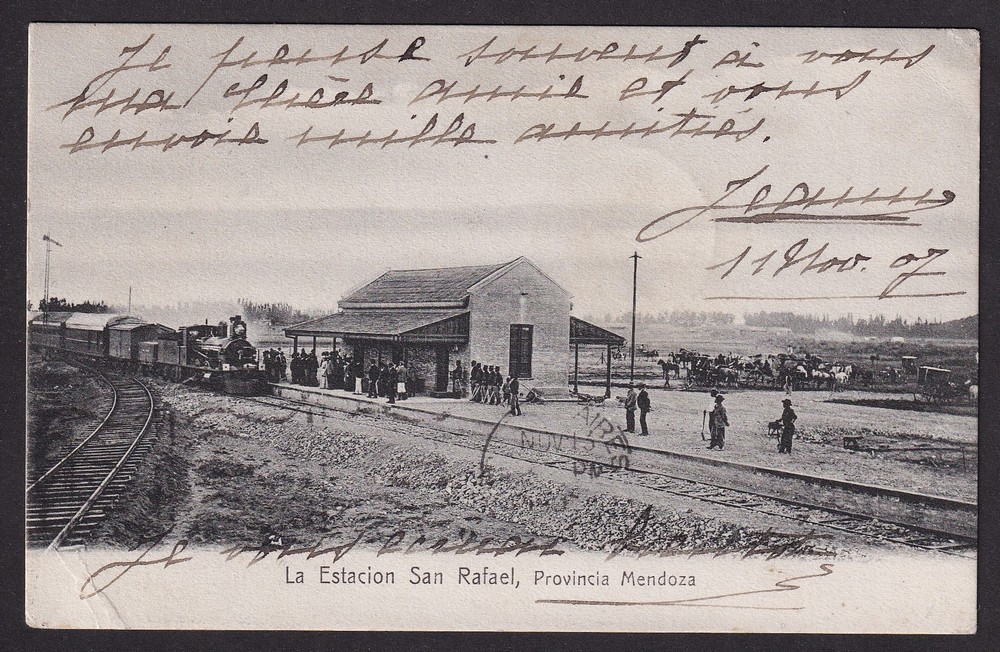 Je pense souvent à vous
ma chère amie et vous
envoie mille amitiés.
Jeanne
11 Nov. 07
AIRES
NOV 13
PM
Je vous écrirai bientôt
La Estacion San Rafael, Provincia Mendoza